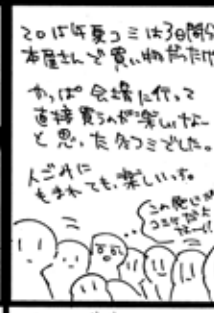 2015年夏コミは3日間
本屋さんで買い物だったけど
やっぱ会場に行って
直接買うのが楽しいなー
と思った冬コミでした。
人ごみに
もまれても、楽しいっす。
この感じが
コミケだよ
ねー!!